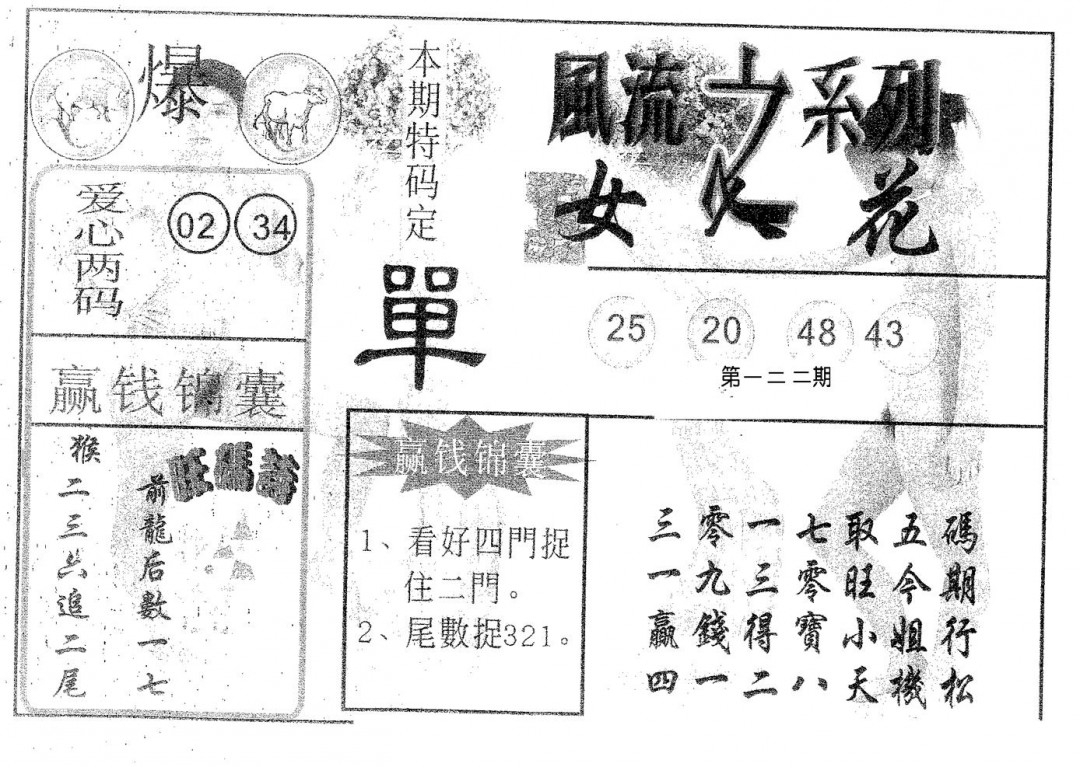 爆
爱心两码
02 34
赢钱锦囊
旺碼詩
前龍后數一七
猴二三六追二尾
本期特码定
單
赢钱锦囊
1、看好四門捉
住二門。
2、尾數捉321。
風流之系列
女人花
25 20 48 43
第一二二期
三零一七取五碼
一九三零旺今期
贏錢得寶小姐行
四一二八天機松